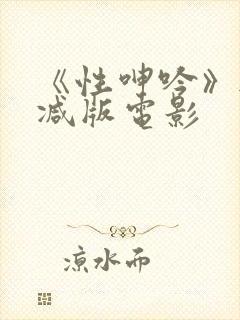 《性呻吟》
减版电影
凉水而